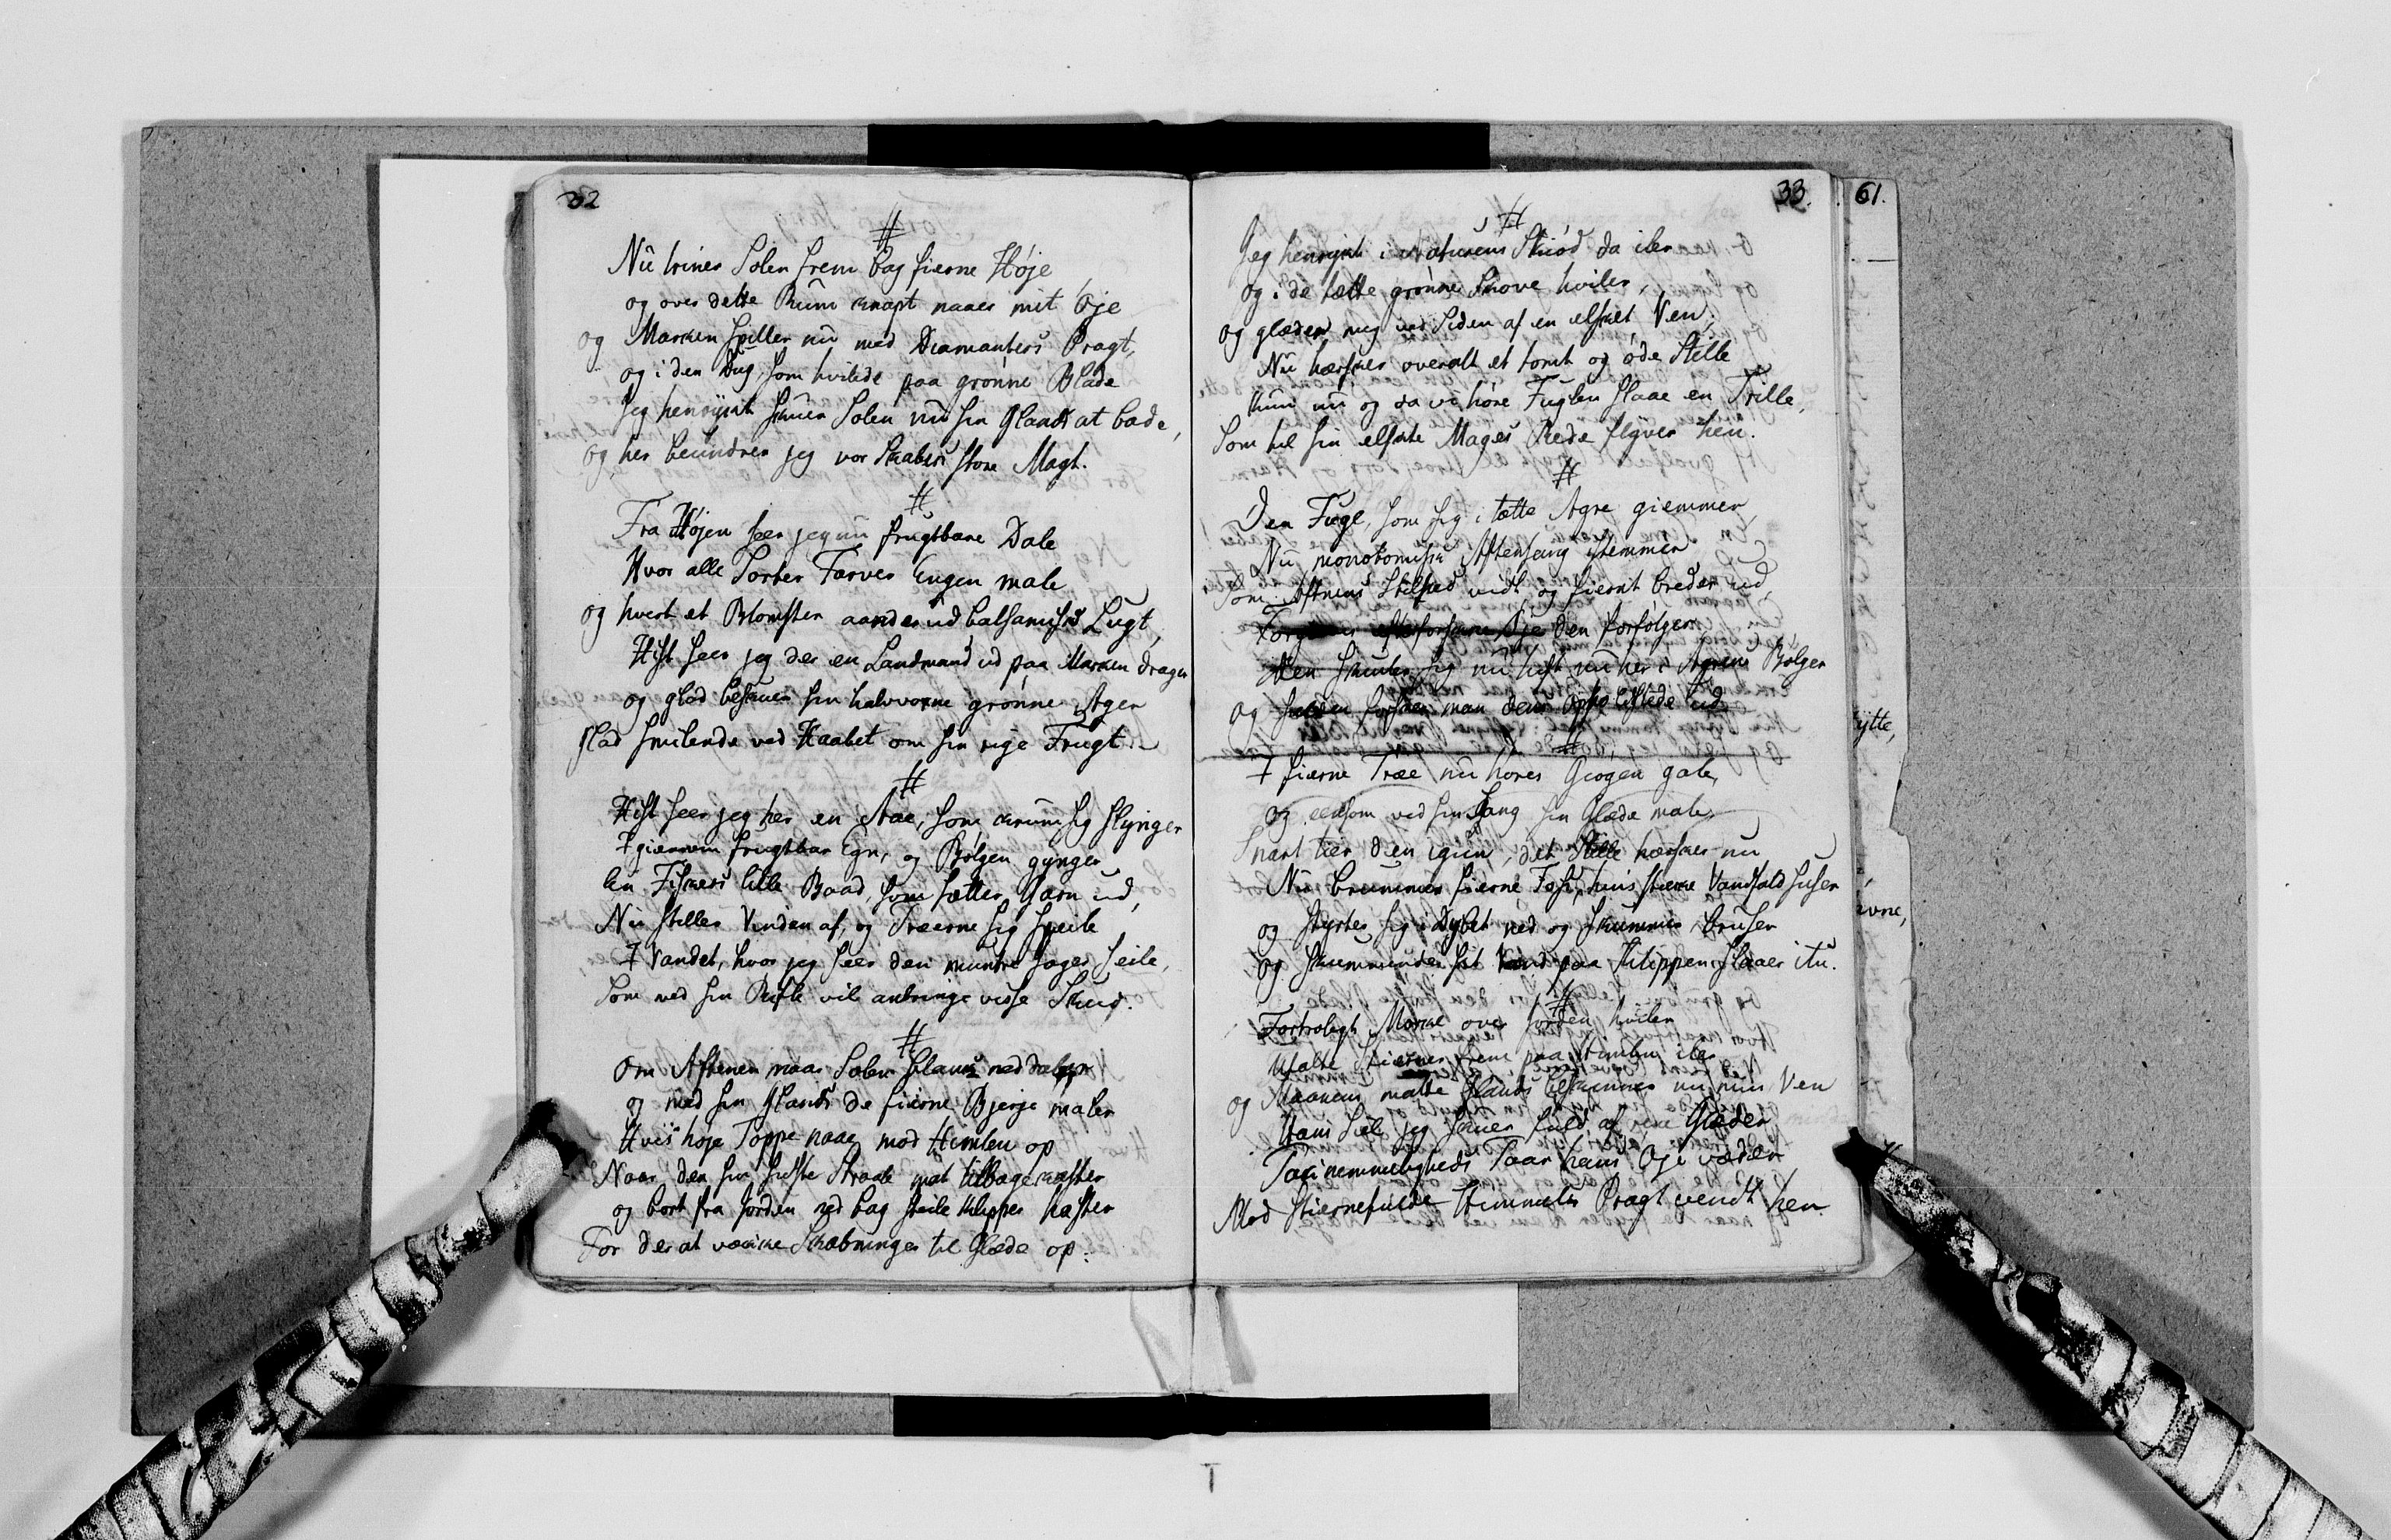 32
#
Nu triner Solen frem bag fierne Høje
og over dette Rum knapt naaer mit Øje
og Marken spiller nu med Diamanters Pragt,
og i den Dug, som hvilede paa grønne Blade
Jeg henrykt skuer Solen nu sin Glands at bade,
Og her beundrer jeg vor Skabers store Magt.
#
Fra Højen seer jeg nu frugtbare Dale
Hvor alle Sorter Farver Engen male
og hvert et Blomster aander ud balsamisk Lugt,
Hist seer jeg der en Landmand ud paa Marken drager
og glad beskuer sin halvvoxne grønne Ager
glad smilende ved Haabet om sin rige Frugt.
#
Hist seer jeg her en Aae, som krum sig slynger
I giennem frugtbar Egn, og Bølgen gynger
En Fiskers lille Baad, som sætter Garn ud,
Nu stiller Vinden af, og Træerne sig speile
I Vandet, hvor jeg seer den muntre Jæger seile,
Som med sin Rifle vil anbringe visse Skud.
#
Om Aftenen naar Solen ned daler
og med sin Glands de fierne Bjerge maler
Hvis høje Toppe naae mod Himlen op
Naar den sin sidste Straale mat tilbagekaster
og bort fra Jorden ned bag steile Klipper haster
For der at vække Skabninger til Glæde op.
33.
#
Jeg henrykt i Naturens Skiød da iler
og i de tætte grønne Skove hviler,
og glæder mig ved Siden af en elsket Ven,
Nu hersker overalt et tomt og øde Stille
kun nu og da vi høre Fuglen slaae en Trille,
Som til sin elskte Mages Rede flyver hen.
#
Den Fugl, som sig i tætte Agre giemmer
Nu monotonisk Aftensang istemmer
Som Aftnens Stilhed vidt og fiernt breder ud,
efterforskere Øje den forfølger
Den skiuler sig nu hist nu her i Agrens Bølger
og man dens ud
#
I fierne Træe nu høres Giøgen gale,
og eensom ved sin Sang sin Glæde male
Snart tier den igien, det Stille hersker nu
Nu brummer fierne Fos, hvis stærke Vandfald suser
og styrter sig i Dybet ned og skummer bruser
og skummende sit Vand paa Klippen slaaer itu.
#
Fortroligt Mørke over Jorden hviler
Matte Stierner frem paa Himlen iler
og Maanens matte Glands beskinner nu min Ven
Hans Siel jeg skuer fuld af rene Glæder
Taknemmeligheds Taar hans Øje væder
Mod stiernefulde Himmels Pragt vendt hen.
61.
ytte,